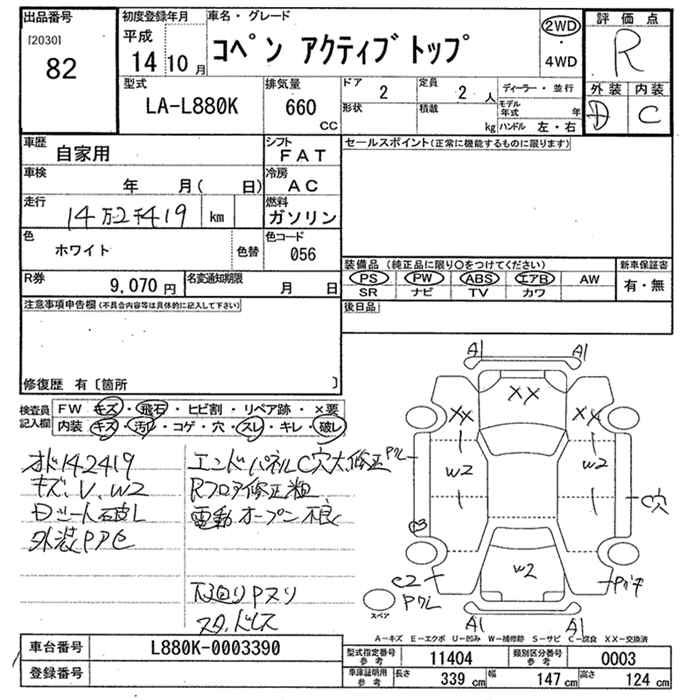 出品番号
[2030]
82
初度登録年月
平成
14 10 月
車名・グレード
コペン アクティブトップ
2WD
・
4WD
評価点
R
外装 内装
D C
型式
LA-L880K
排気量
660
CC
ドア
2
定員
2 人
形状
積載
kg
ディーラー・並行
モデル年式 年
ハンドル 左・右
車歴
自家用
シフト
FAT
車検
年 月( 日)
冷房
AC
走行
14万2千419 km
燃料
ガソリン
色
ホワイト
色替
色コード
056
R券
9,070 円
名変通知期限
月 日
セールスポイント(正常に機能するものに限ります)
装備品(純正品に限り○をつけてください)
PS PW ABS エアB AW
SR ナビ TV カワ
新車保証書
有・無
後日品
注意事項申告欄(不具合内容等は具体的に記入して下さい)
修復歴 有〔箇所 〕
検査員記入欄
FW キズ・飛石・ヒビ割・リペア跡・×要
内装 キズ・汚れ・コゲ・穴・スレ・キレ・破レ
オド142419
キズ、U、W2
Dシート破レ
外装Pアセ
エンドパネルC穴大修正
Rフロア修正粗
電動オープン不良
下廻りPヌリ
スタッドレス
A1 A1
XX
XX XX
W2 W2
C穴
W2
C2
Pクレ
A1 A1
スペア
A-キズ E-エクボ U-凹み W-補修跡 S-サビ C-腐食 XX-交換済
車台番号
L880K-0003390
登録番号
型式指定番号 参考
11404
類別区分番号 参考
0003
車庫証明用 参考
長さ 339 cm 幅 147 cm 高さ 124 cm